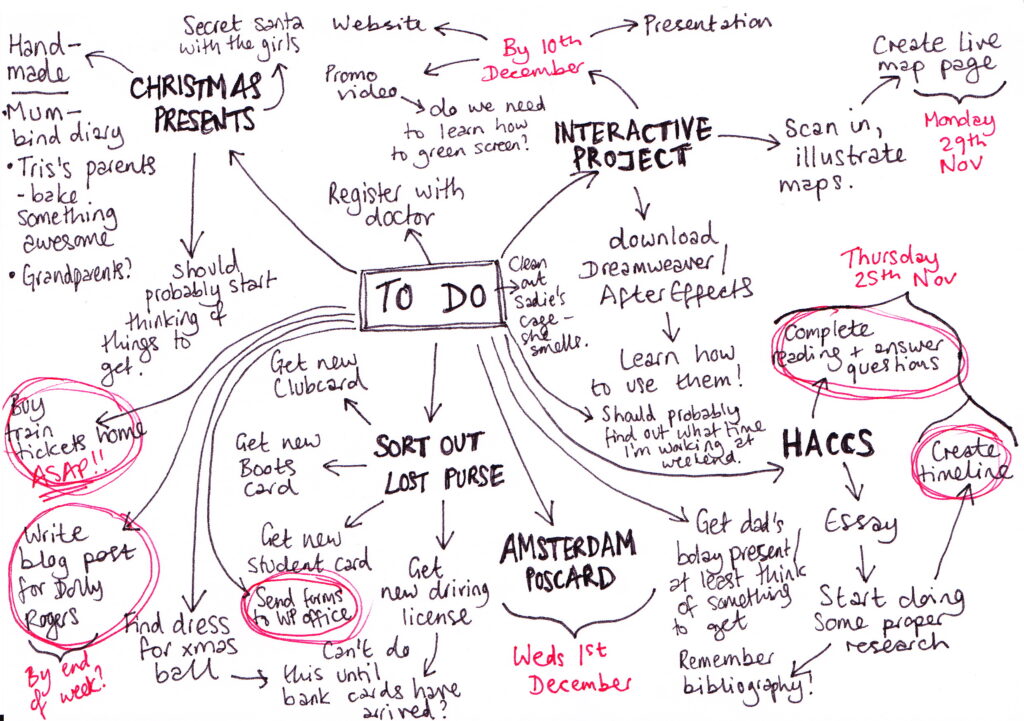 Hand-
made
• Mum-
bind diary
• Tris's parents
- bake
something
awesome
• Grandparents?
Secret santa
with the girls
CHRISTMAS
PRESENTS
should
probably start
thinking of
things to
get.
Website
By 10th
December
Presentation
Promo
video
do we need
to learn how
to green screen?
INTERACTIVE
PROJECT
Scan in,
illustrate
maps.
Create live
map page
Monday
29th
Nov
download
Dreamweaver/
AfterEffects
Learn how
to use them!
Register with
doctor
TO DO
Clean
out
Sadie's
cage -
she
smells.
Should probably
find out what time
I'm working at
weekend.
Thursday
25th Nov
Complete
reading + answer
questions
HACCS
Create
timeline
Essay
Start doing
some proper
research
Remember
bibliography!
Get dad's
bday present/
at least think
of something
to get
AMSTERDAM
POSCARD
Weds 1st
December
SORT OUT
LOST PURSE
Get new
Clubcard
Get new
Boots
card
Get new
student card
Get
new driving
license
Can't do
this until
bank cards have
arrived?
Send forms
to WP office
Find dress
for xmas
ball
Buy
train
tickets home
ASAP!!
Write
blog post
for Dolly
Rogers
By end
of week?